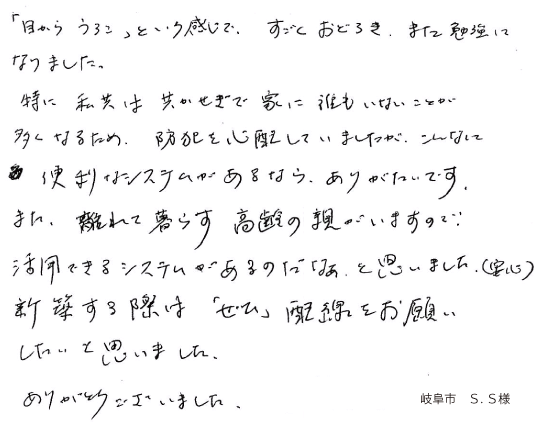 「目から うろこ」という感じで、 すごく おどろき、また 勉強に
なりました。
特に 私共は 共かせぎで 家に 誰も いない ことが
多く なるため、 防犯を心配して いましたが、こんなに
便利なシステムが あるなら、ありがたいです。
また、離れて 暮らす 高齢の 親がいますので
活用できるシステムがあるのだなぁ、と思いました。(安心)
新築する際は 「ぜひ」 配線をお願い
したいと思いました。
ありがとうございました。
岐阜市 S.S様